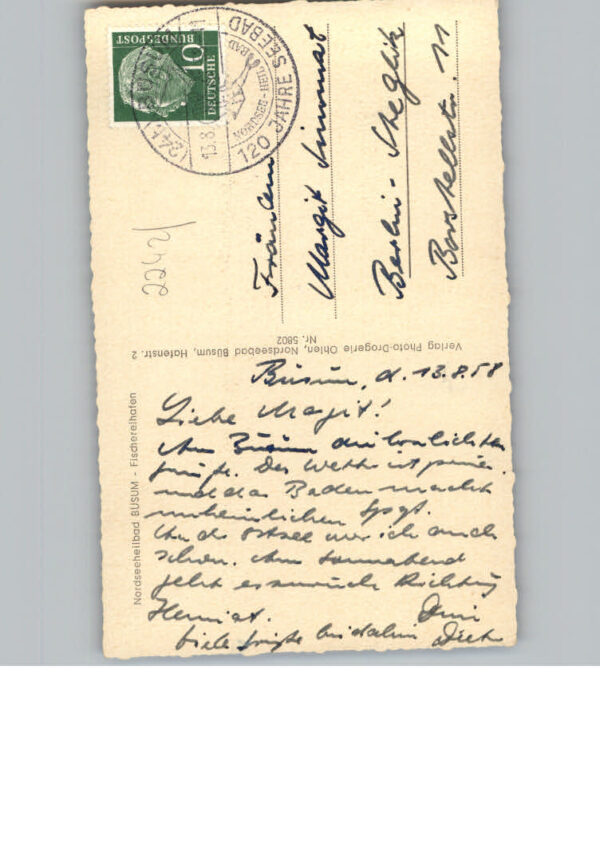 DEUTSCHE
BUNDESPOST
10
(24b)
13.8.
120 JAHRE SEEBAD
NORDSEE-HEILBAD
2242/
Fräulein
Margit
Berlin-Steglitz
Borstellstr. 11
Verlag Photo-Drogerie Ohlen, Nordseebad Büsum, Hafenstr. 2
Nr. 5802
Nordseeheilbad BÜSUM - Fischereihafen
Büsum, d. 13.8.58
Liebe Magit!
Aus Büsum die herzlichsten
Grüße. Das Wetter ist prima
und das Baden macht
unheimlichen Spaß.
An der Ostsee war ich auch
schon. Am Sonnabend
geht es zurück Richtung
Heimat. Dein
Viele Grüße bis dahin